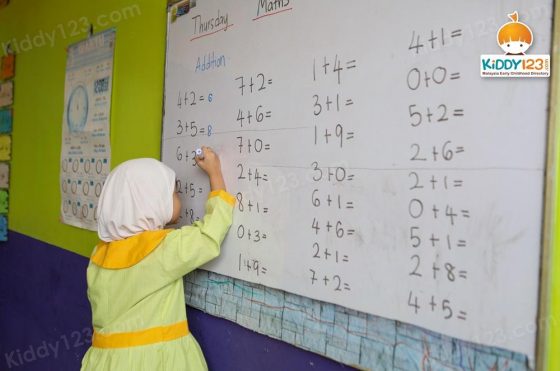 Thursday Maths
Addition
4+2=6
3+5=8
6+3
2+5=
+8=
7+2=
4+6=
7+0=
2+4=
8+1=
0+3=
1+9=
1+4=
3+1=
1+9=
3+0=
6+1=
4+6=
2+1=
7+2=
4+1=
0+0=
5+2=
2+6=
2+1=
0+4=
5+1=
2+8=
4+5=
KiDDY123.com
Malaysia Early Childhood Directory
Kiddy123.com